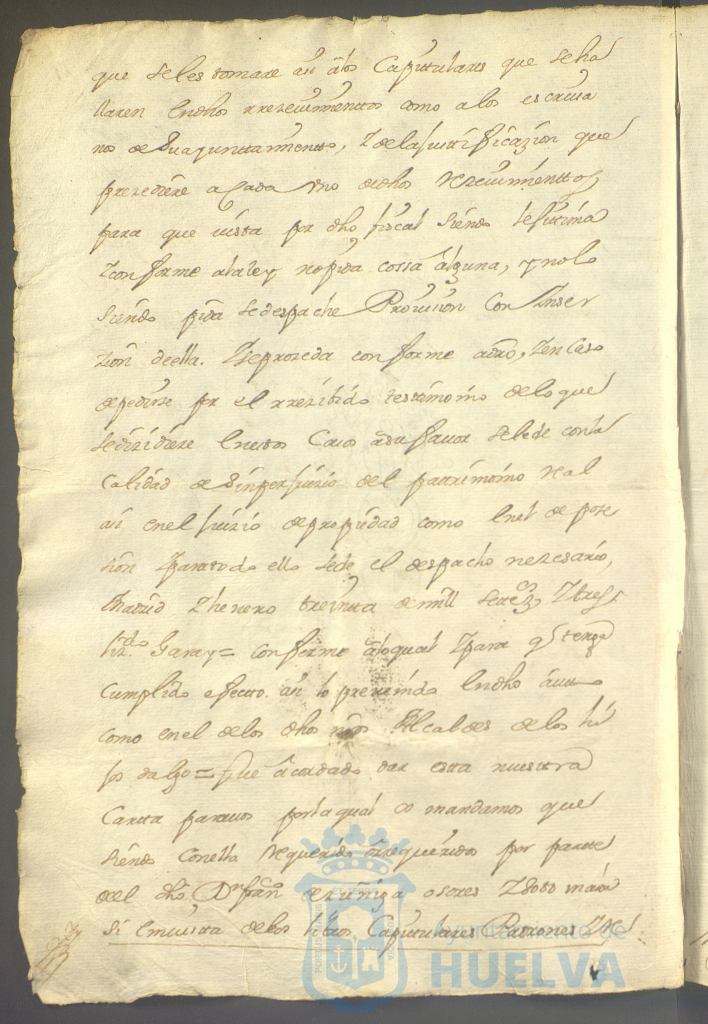 que seles tomare asi a los Capitulares que seha
llaren endhos rrezeuimientos como a los escriua
nos de su ayuntamiento, Y dela justificazion que
prezediere a Cada vno dedhos Rezeuimientos
para que vista por dho fiscal siendo lejitima
Y conforme alaley nopida cossa alguna, y nolo
siendo pida sedespache Prouision Con Ynser
zion deella. Y seprozeda conforme adro, Y en Caso
depedirse por el rrezibido testimonio delo que
sedizidiere enestos Casos asufauor selede conla
Calidad de sinperjuizio del patrimonio real
asi enel juizio depropiedad como enel de pose
sion Y paratodo ello sede el despacho nezesario,
Madrid Y henero treinta demill setez.s Y tres
liz.do Garay = conforme alo qual Y para q tenga
Cumplido efecto. asi lo preuenido endho auto
como enel de los dhos nros Alcaldes de los hi
jos dalgo = fue acordado dar esta nuestra
Carta parauos porla qual os mandamos que
siendo Conella Requerido o rrequeridos por parte
del dho Dn fran.co dezuñiga
si en vista delos
Capitulares Padrones
Ayuntamiento de
HUELVA